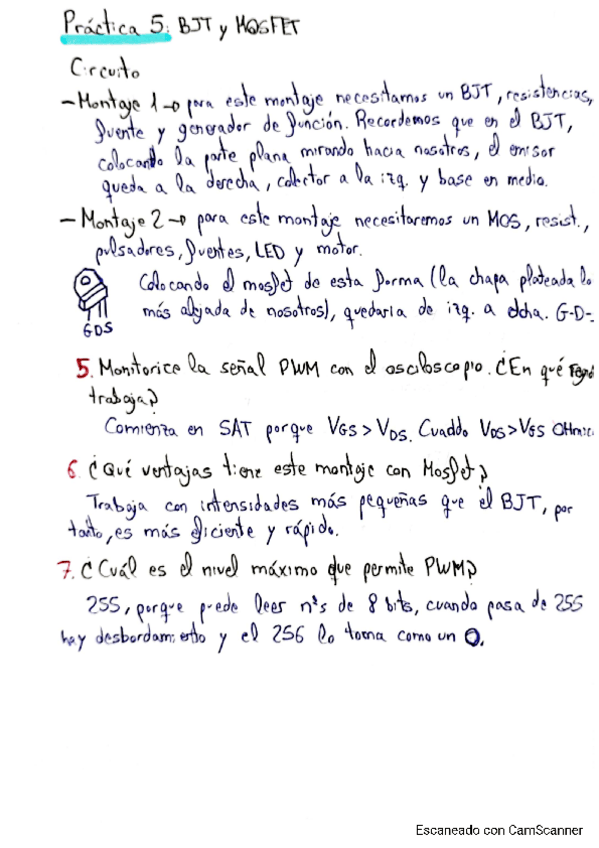 Práctica 5: BJT y MOSFET
Circuito
- Montaje 1 → para este montaje necesitamos un BJT, resistencias,
fuente y generador de función. Recordemos que en el BJT,
colocando la parte plana mirando hacia nosotros, el emisor
queda a la derecha, colector a la izq. y base en medio.
- Montaje 2 → para este montaje necesitaremos un MOS, resist.,
pulsadores, fuentes, LED y motor.
Colocando el mosfet de esta forma (la chapa plateada lo
más alejada de nosotros), quedaria de izq. a dcha. G-D-
GDS
5. Monitorice la señal PWM con el osciloscopio. ¿En qué
trabaja?
Comienza en SAT porque VGS > VDS. Cuaddo VDS > VGS OHmic
6. ¿Qué ventajas tiene este montaje con Mosfet?
Trabaja con intensidades más pequeñas que el BJT, por
tanto, es más eficiente y rápido.
7. ¿Cuál es el nivel máximo que permite PWM?
255, porque puede leer nºs de 8 bits, cuando pasa de 255
hay desbordamiento y el 256 lo toma como un 0.
Escaneado con CamScanner